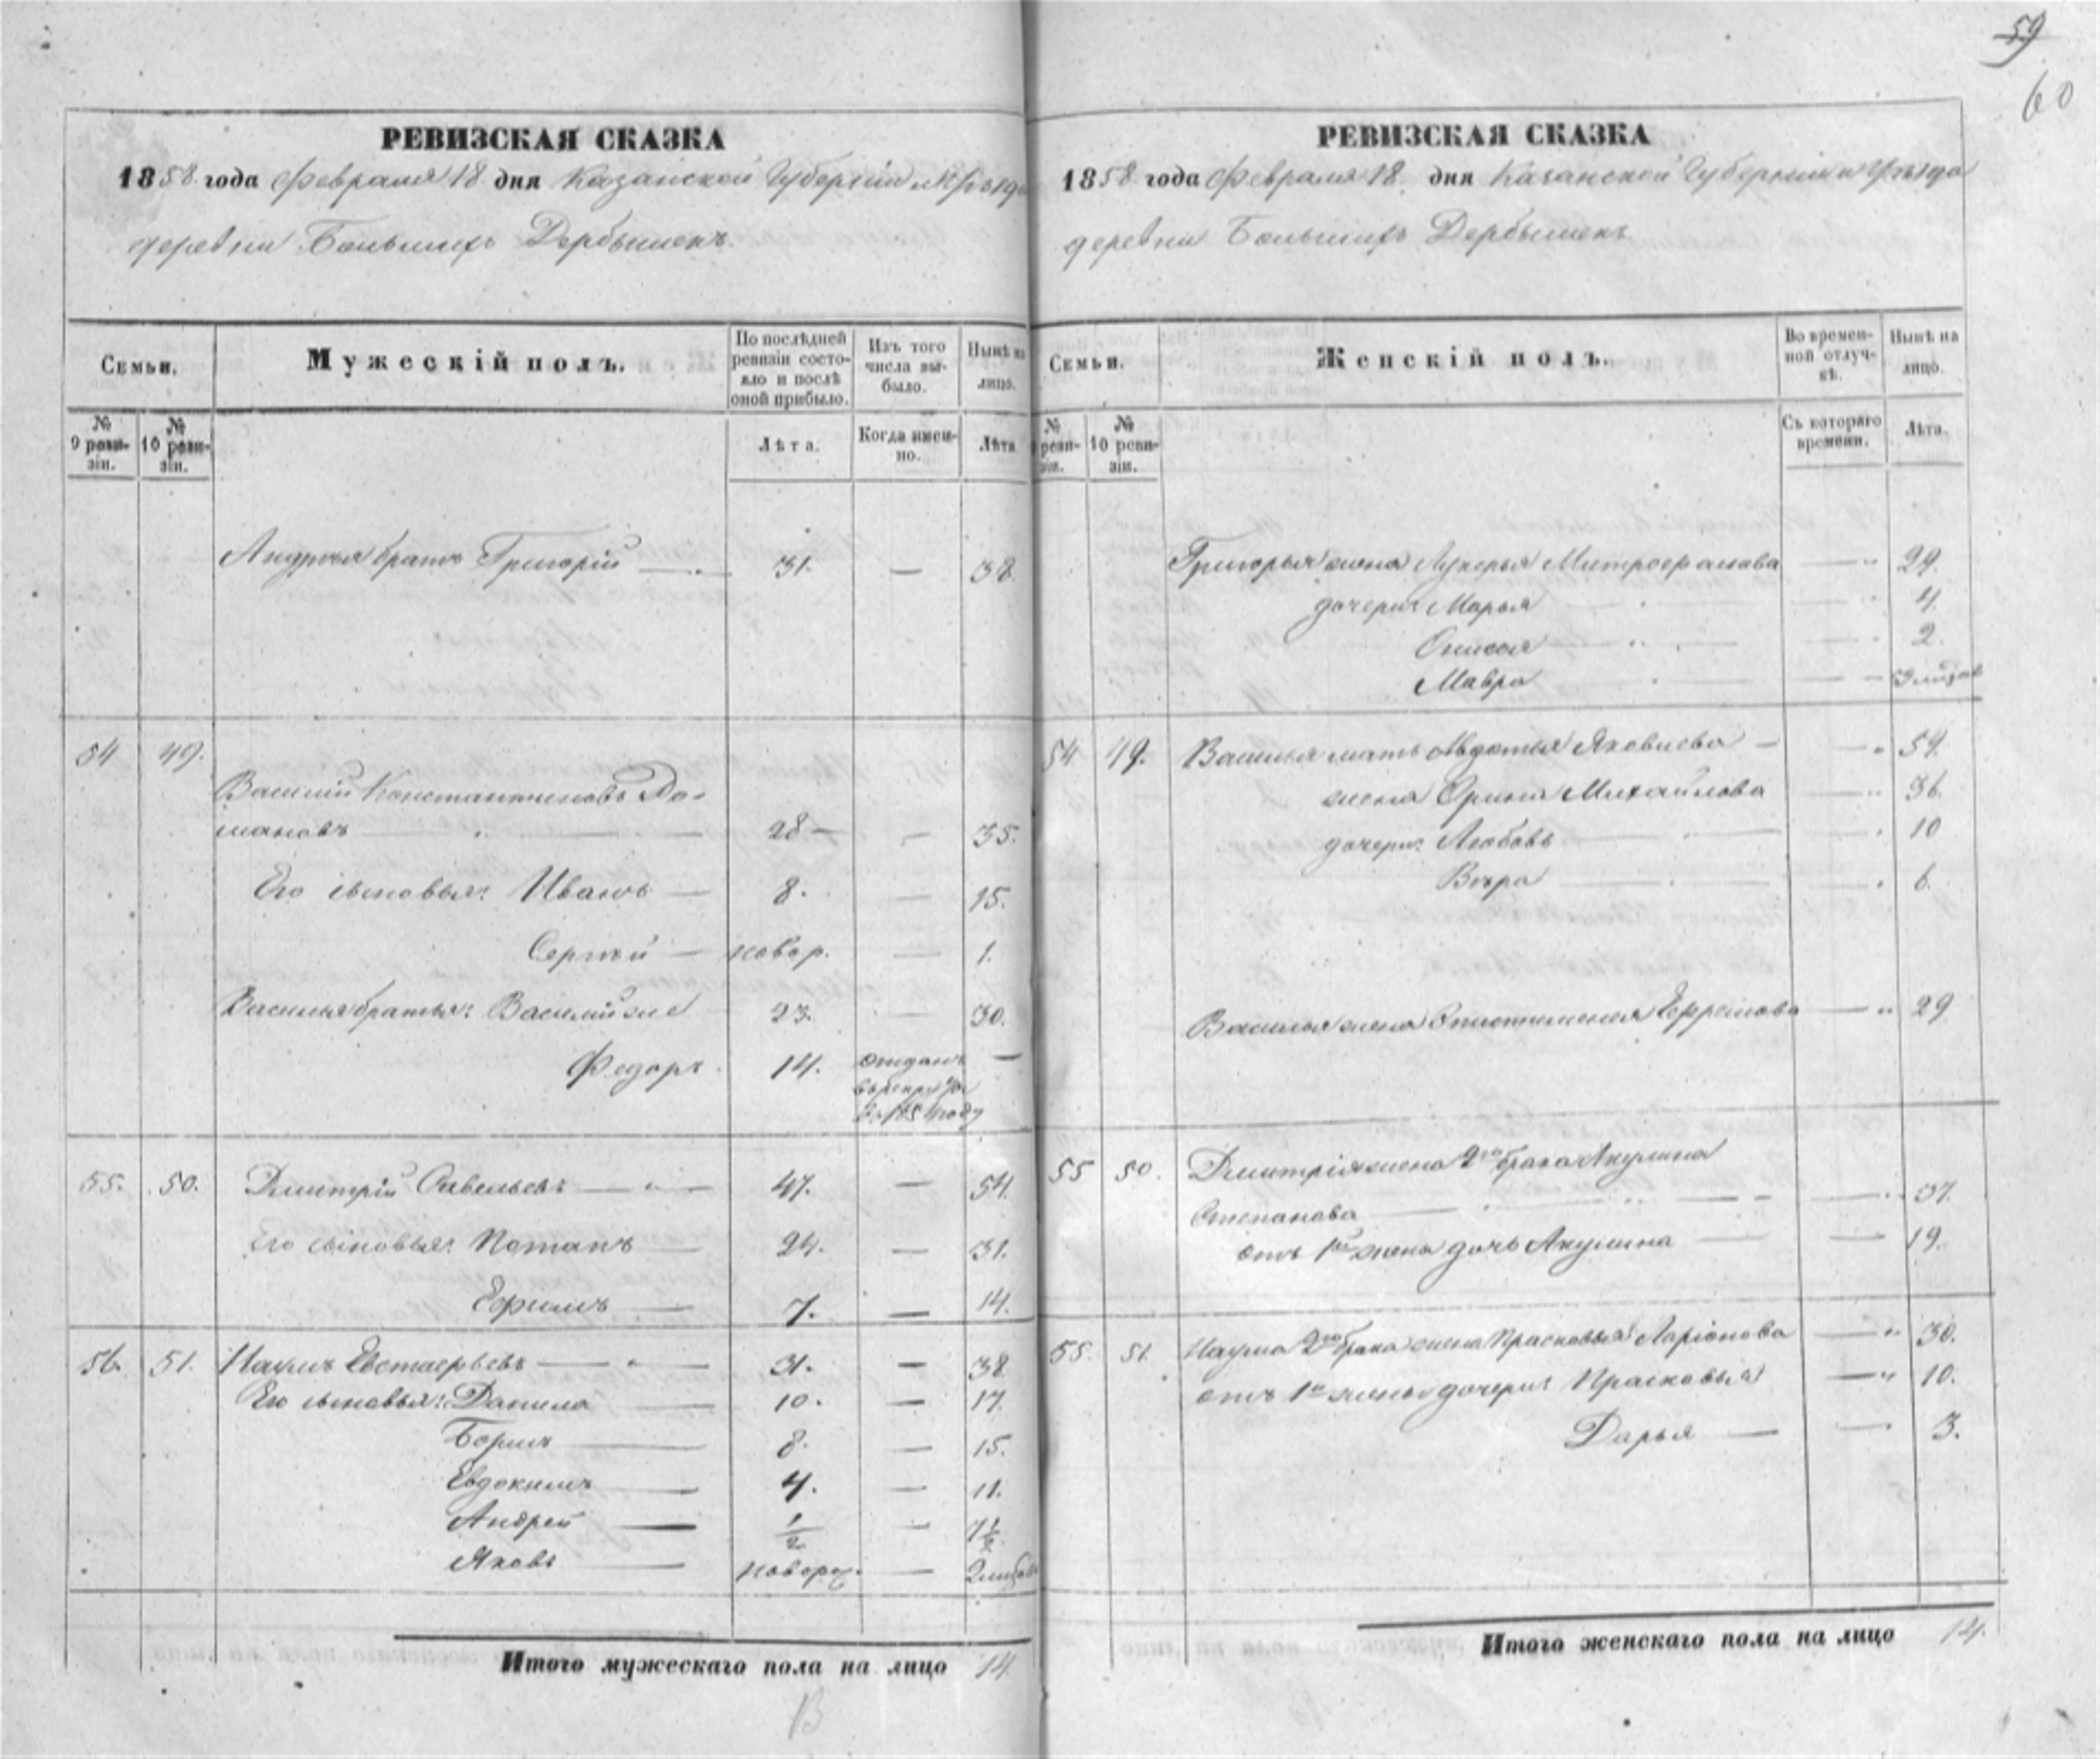 59
60
РЕВИЗСКАЯ СКАЗКА
1858 года Февраля 18 дня Казанской Губернiи и Уѣзда
деревни Большихъ Дербышекъ.
Семьи.
Мужескiй полъ.
По послѣдней ревизiи состояло и послѣ оной прибыло.
Изъ того числа выбыло.
Нынѣ на лицо.
№ 9 ревизiи.
№ 10 ревизiи.
Лѣта.
Когда именно.
Лѣта
Андрея братъ Григорiй 31. — 38
54 49.
Василий Константиновъ
28 — — 35.
Его сыновья: Иванъ — 8. — 15.
Сергѣй — новор. — 1.
Василья братья: Василий же 23. — 30.
Федоръ 14. отданъ —
въ рекруты
въ 1854 году
55. 50. Дмитрiй Савельевъ — 47. — 54.
Его сыновья: Потапъ — 24. — 31.
Ефимъ — 7. — 14.
56. 51. Наумъ Евстафьевъ — 31. — 38
Его сыновья: Данила — 10. — 17.
Борисъ — 8. — 15.
Евдокимъ — 4. — 11.
Андрей — 1/2 — 7 1/2
Яковъ — новорож. —
Итого мужескаго пола на лицо 14
РЕВИЗСКАЯ СКАЗКА
1858 года Февраля 18. дня Казанской Губернiи и Уѣзда
деревни Большихъ Дербышекъ
Семьи.
Женскiй полъ.
Во временной отлучкѣ.
Нынѣ на лицо.
№ ревизiи.
№ 10 ревизiи.
Съ котораго времени.
Лѣта.
Григорья жена Лукерья Митрофанова — 29.
дочери: Марья — 4.
Анисья — 2.
Мавра —
54 49. Василья мать Авдотья Яковлева — 59.
жена Орина Михайлова — 36.
дочери: Любовь — 10
Вѣра — 6.
Василья жена Ефремова — 29
55 50. Дмитрiя жена 2го брака Акулина
Степанова — 37.
отъ 1ой жены дочь Акулина — 19.
55. 51. Наума 2го брака жена Прасковья Ларiонова — 30.
отъ 1й жены дочери: Прасковья — 10.
Дарья — 3.
Итого женскаго пола на лицо 14.